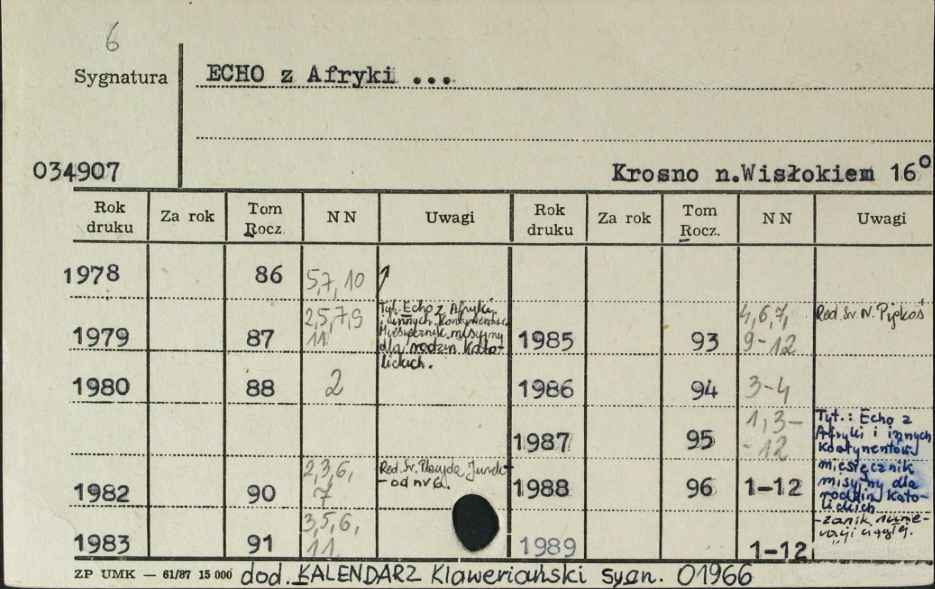 6
Sygnatura
ECHO z Afryki ...
034907
Krosno n.Wisłokiem 16°
Rok druku Za rok Tom Rocz. NN Uwagi Rok druku Za rok Tom Rocz. NN Uwagi
1978 86 5,7,10
1979 87 2,5,7,9 11 Tyt. Echo z Afryki i innych kontynentów. Miesięcznik misyjny dla rodzin katolickich. 1985 93 4,6,7, 9-12 Red. Św. N.
1980 88 2 1986 94 3-4
1987 95 1,3- -12 Tyt.: Echo z Afryki i innych kontynentów miesięcznik misyjny dla rodzin katolickich
1982 90 2,3,6, 7 Red. Św. - od nr 6. 1988 96 1-12
1983 91 3,5,6, 11 1989 1-12 -zanik numeracji
ZP UMK — 61/87 15 000 dod. KALENDARZ Klaweriański sygn. 01966